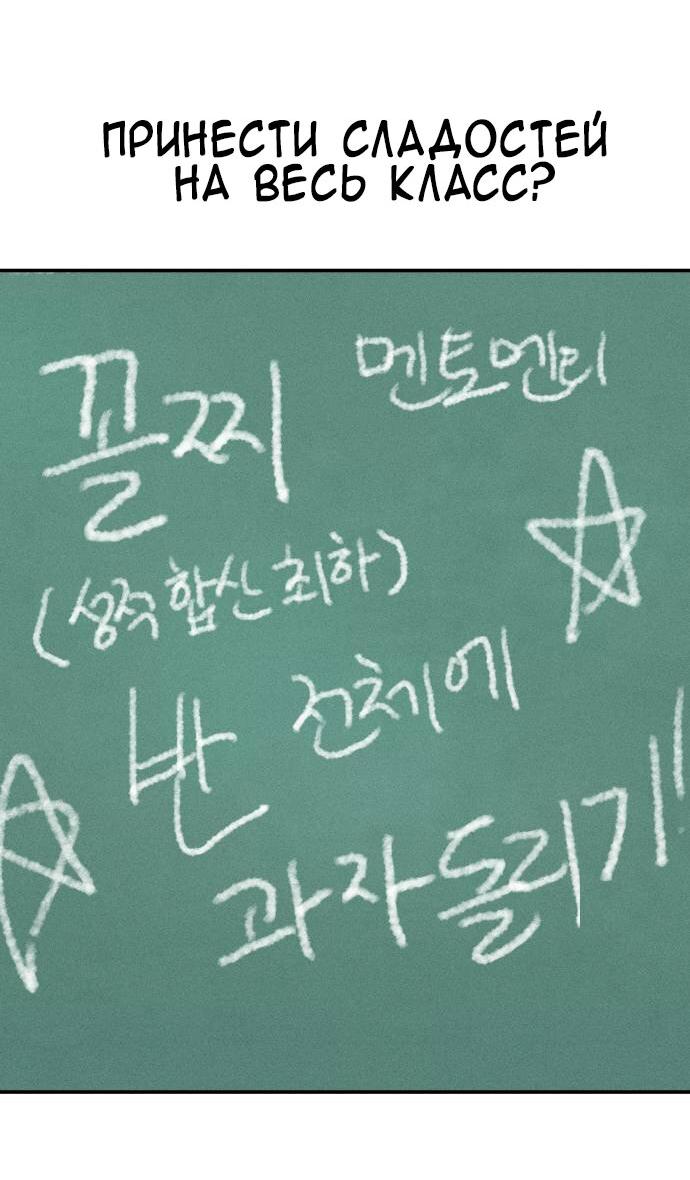 ПРИНЕСТИ СЛАДОСТЕЙ
НА ВЕСЬ КЛАСС?
꼴찌 멘토멘티
(성적합산최하)
반 전체에
과자돌리기!!